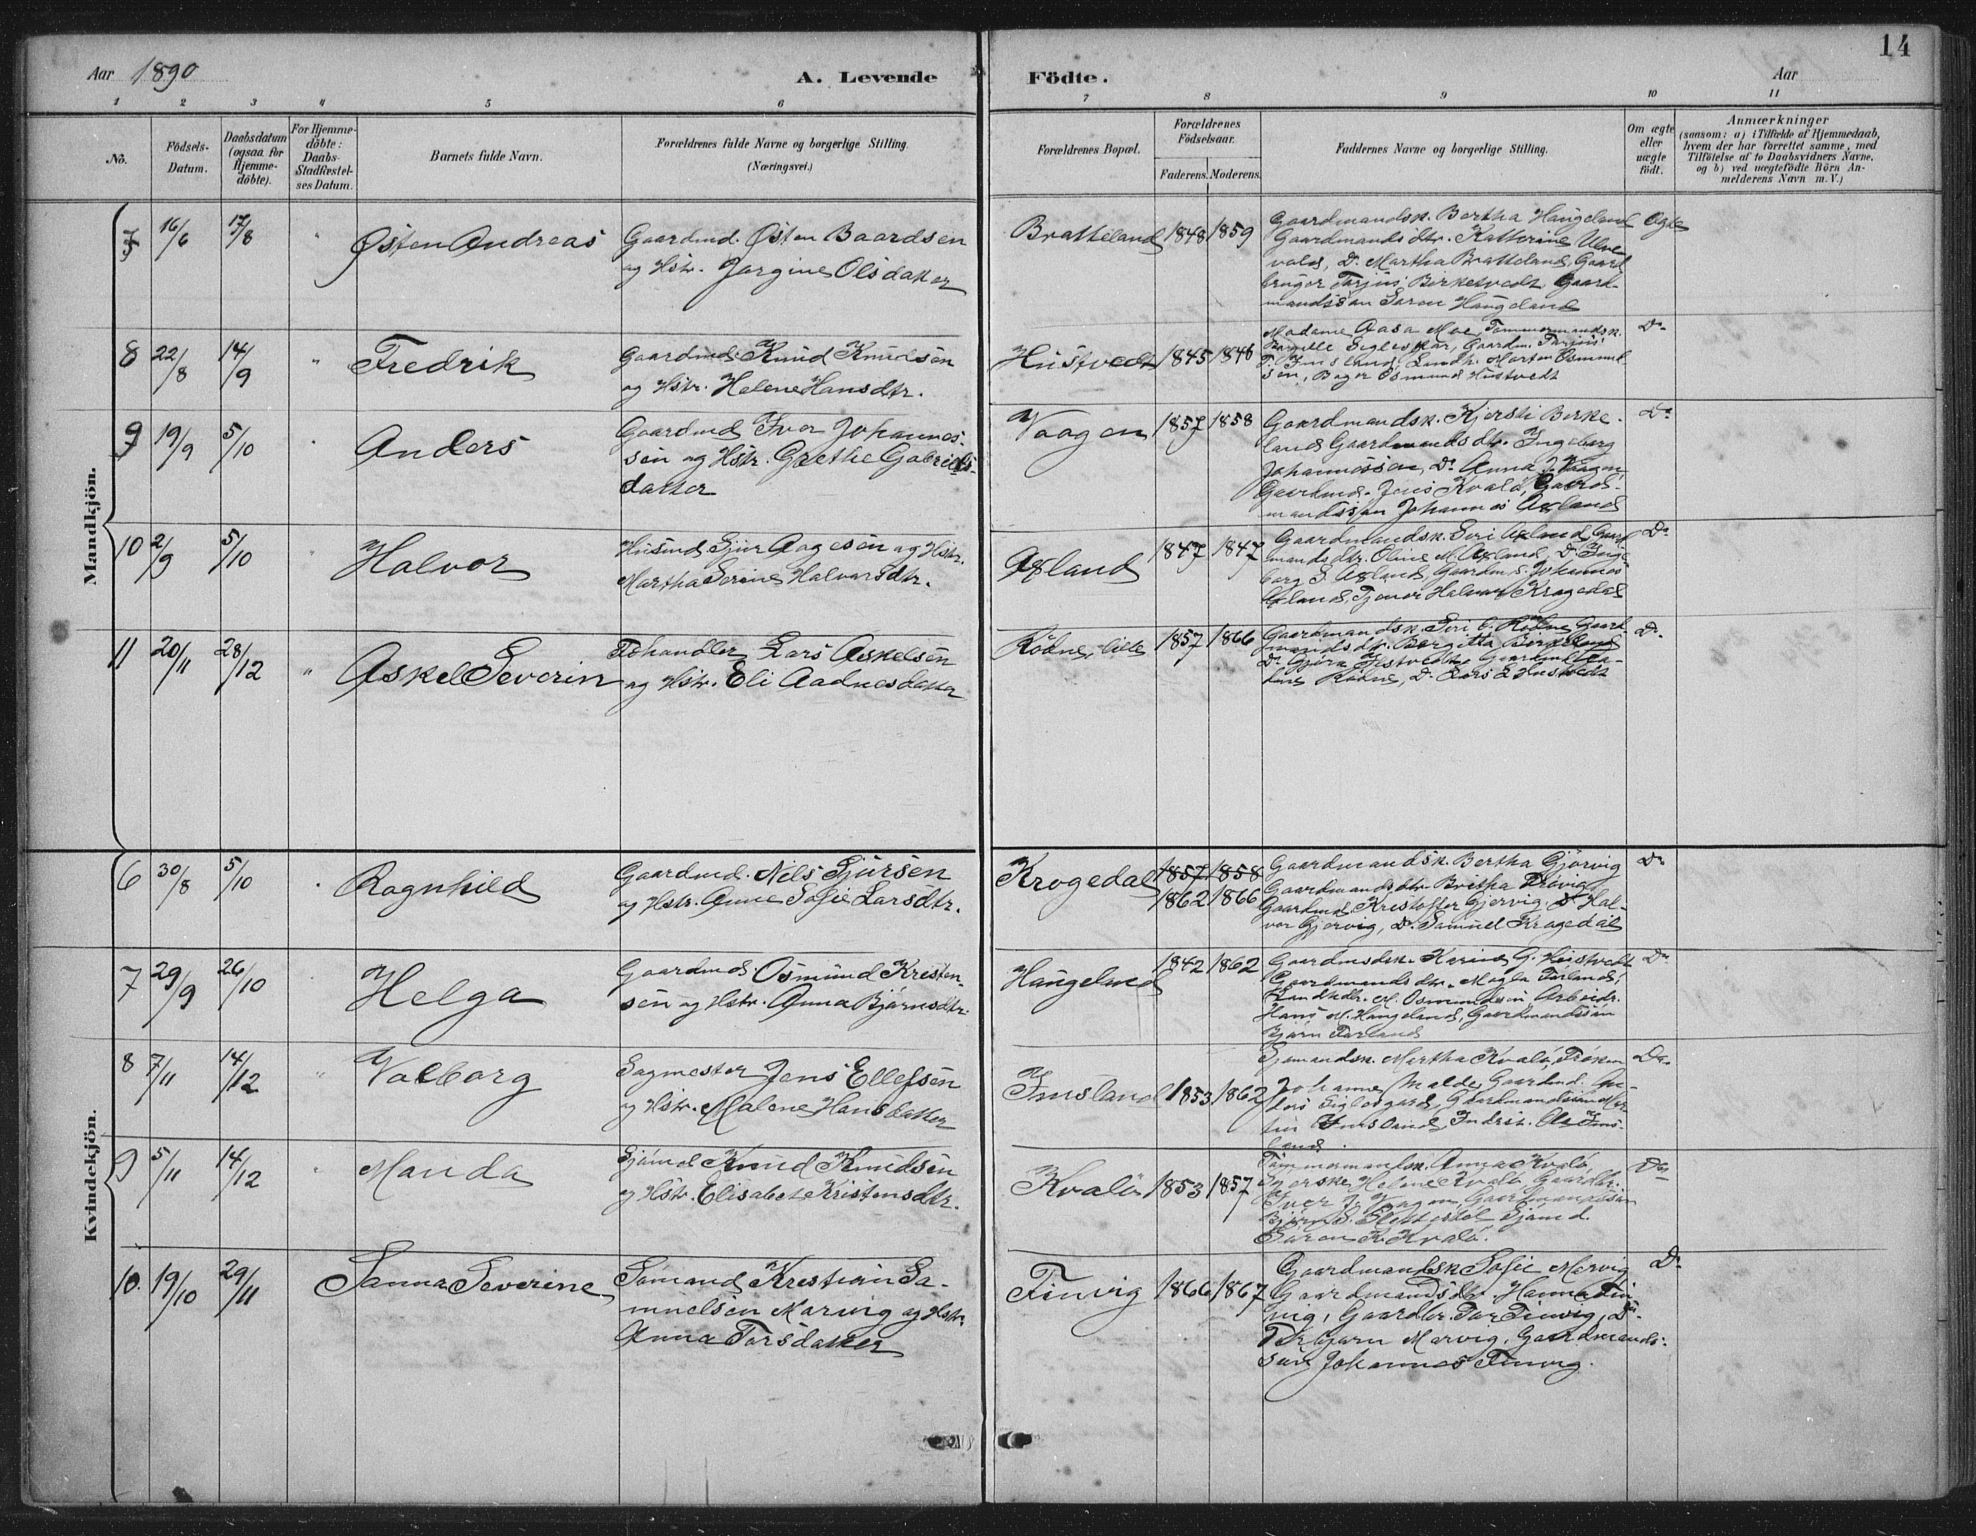 14
Aar 1890
A. Levende
Födte.
Aar
1 2 3 4 5 6 7 8 9 10 11
No.
Födsels-
Datum.
Daabsdatum
(ogsaa for
Hjemme-
döbte).
For Hjemme-
döbte:
Daabs-
Stadfæstel-
ses Datum.
Barnets fulde Navn.
Forældrenes fulde Navne og borgerlige Stilling.
(Næringsvei.)
Forældrenes Bopæl.
Forældrenes
Födselsaar.
Faderens. Moderens.
Faddernes Navne og borgerlige Stilling.
Om ægte
eller
uægte
födt.
Anmærkninger
(saasom: a) i Tilfælde af Hjemmedaab,
hvem der har forrettet samme, med
Tilföielse af to Daabsvidners Navne,
og b) ved uægtefödte Börn An-
melderens Navn m. V.)
Mandkjön.
16/6 17/8 " Østen Andreas
Gaardmd. Østen Baardsen
og Hstr. Jorgine Olsdatter
Bratteland 1848 1859
Gaardmandsk. Bertha Haugeland
Gaardmandsdtr. Kathrine Ulve-
vold, Do Martha Bratteland, Gaard-
bruger Tarjus Birketvedt Gaard-
mandssøn Søren Haugeland
Ægte
8 22/8 14/9 " Fredrik
Gaardmd. Knud Knudsen
og Hstr. Helene Hansdtr.
Hustvedt 1845 1846
Madame Aasa Moe, Tømmermandsk.
Gaardm. Tarjus
T. Imsland, Landh. Morten Osmund-
sen, Bager Osmund Hustvedt
Do
9 19/9 5/10 " Anders
Gaardmd Iver Johannes-
sen og Hstr. Grethe Gabriels-
datter
Vaagen 1857 1858
Gaardmandsk. Kjersti Berke-
land Gaardmandsdtr. Ingeborg
Johannessen, Do Anna I. Vaagen,
Gaardmd. Jens Kvalø, Gaard-
mandssøn Johannes Øxland
Do
10 2/9 5/10 " Halvor
Husmd Sjur Aagesen og Hstr.
Martha Serine Halvorsdtr.
Øxland 1847 1847
Gaardmandsk. Siri Øxland, Gaard-
mandsdtr. Oline M. Øxland, Do Inge-
borg S. Øxland, Gaardm. S. Johannes
Øxland, Tjener Halvor Krogedal
Do
11 20/11 28/12 " Askel Severin
Fehandler Lars Askelsen
og Hstr. Eli Aadnesdatter
Rødne lille 1857 1866
Gaardmandsk. Siri Rødne, Gaard-
mandsdtr. Bergitta Birkeland
Rødne, Do Lars E Hustvedt
Do
Kvindekjön.
6 30/8 5/10 " Ragnhild
Gaardmd. Nils Sjursen
og Hstr. Anne Sofie Larsdtr.
Krogedal 1857 1858
1862 1866
Gaardmandsk. Bertha Gjørvig
Gaardmandsdtr. Britha Trøvig
Gaardmd. Kristoffer Gjervig, Do Hal-
vor Gjervig, Do. Samuel Krogedal
Do
7 29/9 26/10 " Helga
Gaardmd. Osmund Kristen-
sen og Hstr. Anna Bjørnsdtr.
Haugeland 1842 1862
Gaardmdsk. Karine G. Hustvedt
Gaardmandsdtr. Magla Førland,
Landhdlr. M. Osmundsen, Arbeidr.
Hans M. Haugeland, Gaardmandssøn
Bjørn Førland
Do
8 7/11 14/12 " Valborg
Sagmester Jens Ellefsen
og Hstr. Malene Hansdatter
Imsland 1853 1862
Sjømandsk. Martha Kvalø, Frøken
Johanne Malde, Gaardmd. An-
ders Gaardmandssøn Mar-
tin Imsland, Indrid Ols. Ims-
land.
Do
9 5/11 14/12 " Manda
Sjømd Knud Knudsen
og Hstr. Elisabet Kristensdtr.
Kvalø 1853 1857
Tømmermandsk. Anna Kvalø,
Syerske Helene Kvalø, Gaardbr.
Iver J. Vaagen, Gaardmandssøn
Bjørn S. Sjømd.
Søren K. Kvalø.
Do
10. 19/10 29/11 Sanna Severine
Sømand Kristian Sa-
muelsen Marvig og Hstr.
Anna Torsdatter
Finvig 1866 1867
Gaardmandsk Sofie Mervig
Gaardmandsdtr. Hanna Fin-
vig, Gaardbr. Tor Finvig, Do
Torbjørn Marvig, Gaardmands-
søn Johannes Finvig.
Do